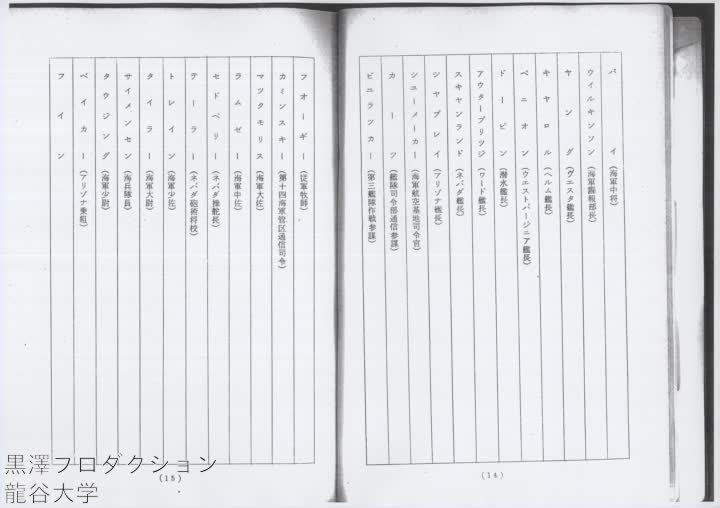 パイ(海軍中将)
ウイルキンソン(海軍諜報部長)
ヤング(ヴエスタ艦長)
キヤロル(ヘルム艦長)
ベニオン(ウエストバージニア艦長)
ドービン(潜水艦長)
アウターブリツジ(ワード艦長)
スキヤンランド(ネバダ艦長)
シヤプレイ(アリゾナ艦長)
シユーメーカー(海軍航空基地司令官)
カーツ(艦隊司令部通信参謀)
ピユラツカー(第三艦隊作戦参謀)
(14)
フオーギー(従軍牧師)
カミンスキー(第十四海軍管区通信司令)
マツクモリス(海軍大佐)
ラムゼー(海軍中佐)
セドベリー(ネバダ操舵長)
テーラー(ネバダ砲術将校)
トレイン(海軍少佐)
タイラー(海軍大尉)
サイメンセン(海兵隊員)
タウジング(海軍少尉)
ベイカー(アリゾナ乗組)
フイン
(15)
黒澤プロダクション
龍谷大学